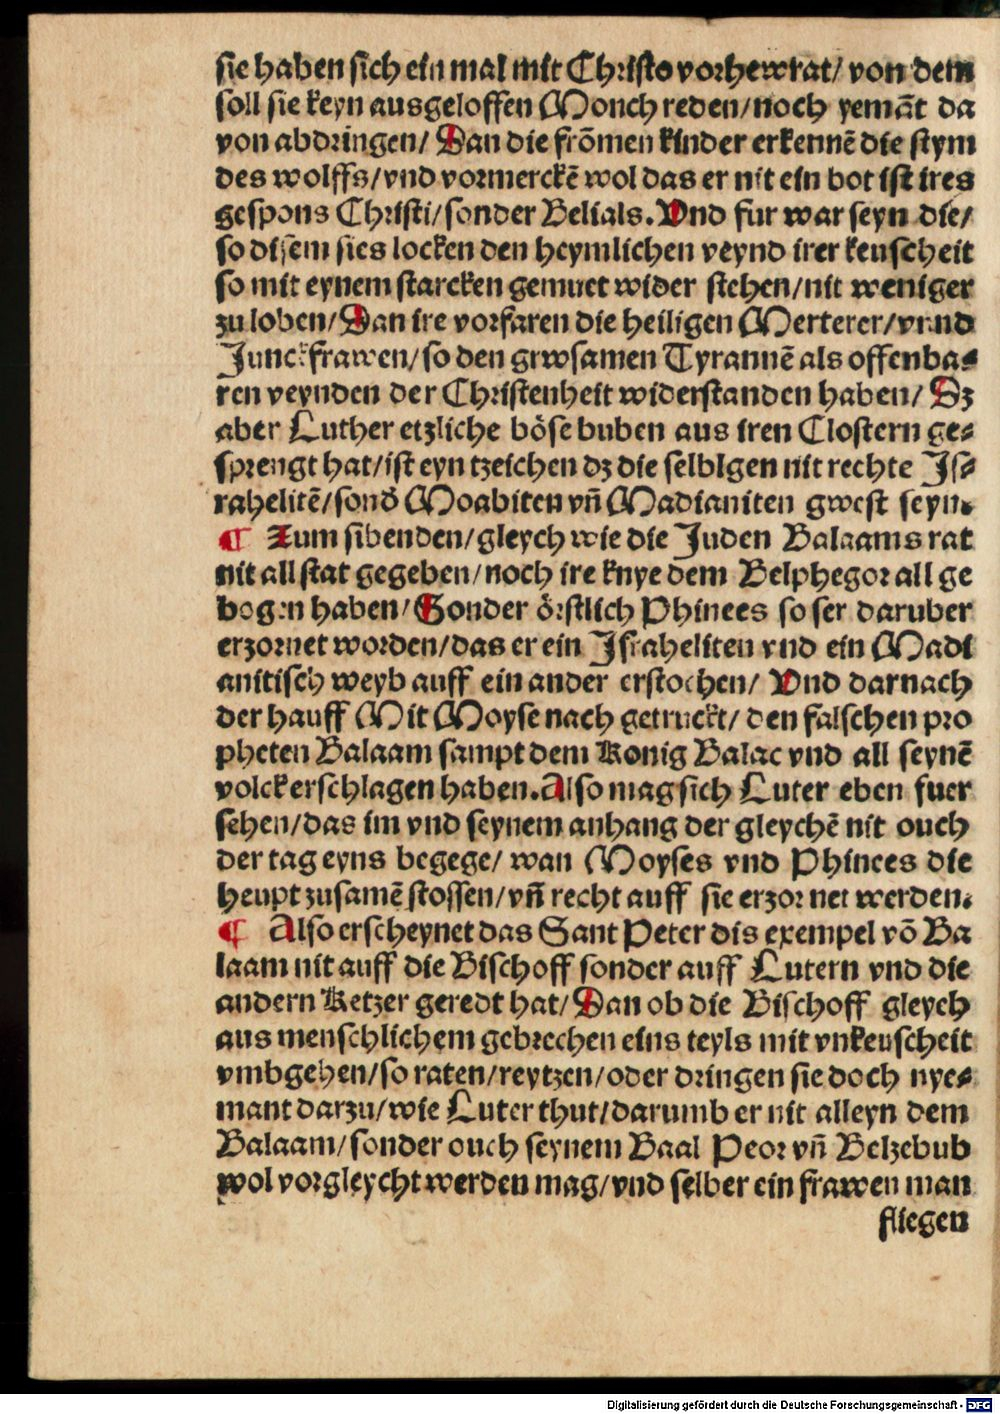 sie haben sich ein mal mit Christo vorhewrat/ von dem
soll sie keyn ausgeloffen Monch reden/noch yemāt da
von abdringen/ Dan die frōmen kinder erkennē die stym
des wolffs/vnd vormerckē wol das er nit ein bot ist ires
gespons Christi/sonder Belials. Vnd fur war seyn die/
so disem sies locken den heymlichen veynd irer keuscheit
so mit eynem starcken gemuet wider stehen/nit weniger
zu loben/Dan ire vorfaren die heiligen Merterer/vnnd
Junckfrawen/so den grwsamen Tyrannē als offenba⸗
ren veynden der Christenheit widerstanden haben/ Dz
aber Luther etzliche böse buben aus iren Clostern ge⸗
sprengt hat/ist eyn tzeichen dz die selbigen nit rechte Js⸗
rahelitē/sond̄ Moabiten vn̄ Madianiten gwest seyn.
¶ Zum sibenden/gleych wie die Juden Balaams rat
nit all stat gegeben/noch ire knye dem Belphegor all ge
bogen haben/Sonder örstlich Phinees so ser daruber
erzornet worden/das er ein Jsraheliten vnd ein Madi
anitisch weyb auff ein ander erstochen/ Vnd darnach
der hauff Mit Moyse nach getruckt/ den falschen pro
pheten Balaam sampt dem Konig Balac vnd all seynē
volck erschlagen haben. Also mag sich Luter eben fuer
sehen/das im vnd seynem anhang der gleychē nit ouch
der tag eyns begege/ wan Moyses vnd Phinees die
heupt zusamē stossen/vn̄ recht auff sie erzornet werden.
¶ Also erscheynet das Sant Peter dis exempel vō Ba
laam nit auff die Bischoff sonder auff Lutern vnd die
andern Ketzer geredt hat/Dan ob die Bischoff gleych
aus menschlichem gebrechen eins teyls mit vnkeuscheit
vmbgehen/so raten/reytzen/oder dringen sie doch nye⸗
mant darzu/wie Luter thut/darumb er nit alleyn dem
Balaam/sonder ouch seynem Baal Peor vn̄ Belzebub
wol vorgleycht werden mag/vnd selber ein frawen man
fliegen
Digitalisierung gefördert durch die Deutsche Forschungsgemeinschaft - DFG